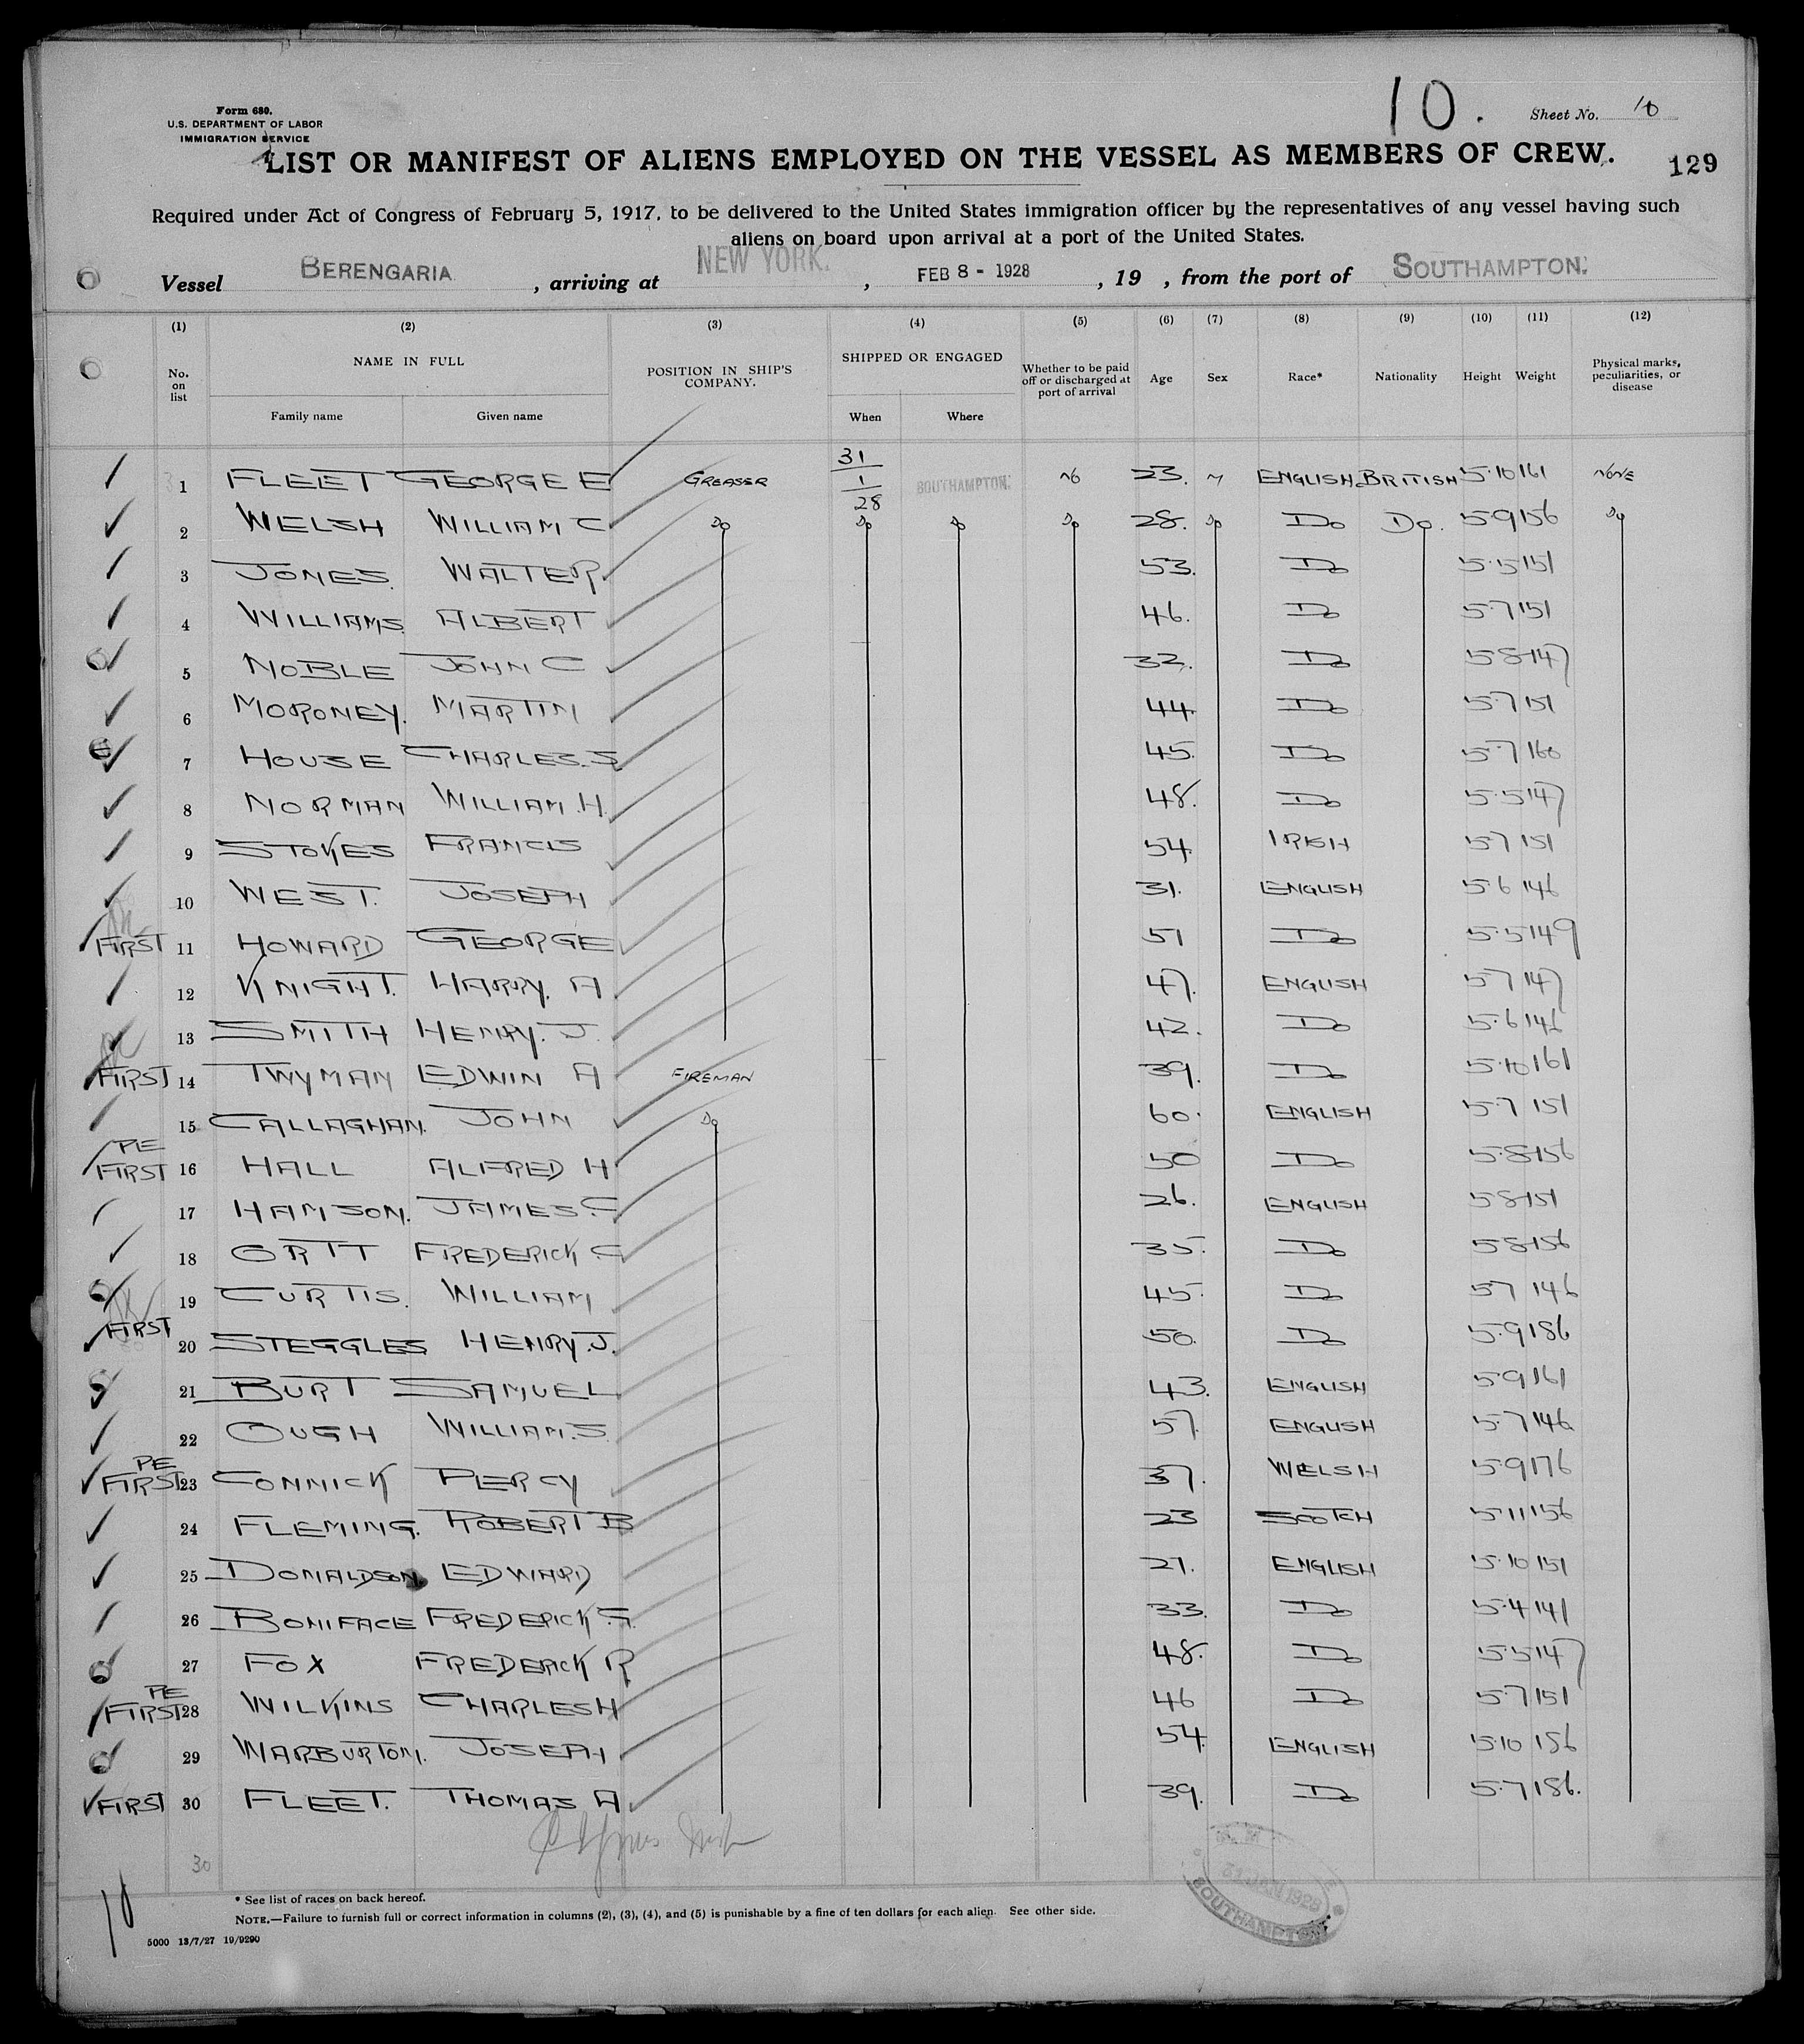 10.
Form 680.
U.S. DEPARTMENT OF LABOR
IMMIGRATION SERVICE
Sheet No. 10
LIST OR MANIFEST OF ALIENS EMPLOYED ON THE VESSEL AS MEMBERS OF CREW.
129
Required under Act of Congress of February 5, 1917, to be delivered to the United States immigration officer by the representatives of any vessel having such
aliens on board upon arrival at a port of the United States.
Vessel BERENGARIA , arriving at NEW YORK. , FEB 8 - 1928 , 19 , from the port of SOUTHAMPTON.
(1) (2) (3) (4) (5) (6) (7) (8) (9) (10) (11) (12)
No. on list NAME IN FULL POSITION IN SHIP'S COMPANY. SHIPPED OR ENGAGED Whether to be paid off or discharged at port of arrival Age Sex Race* Nationality Height Weight Physical marks, peculiarities, or disease
Family name Given name When Where
1 FLEET GEORGE E GREASER 31/1/28 SOUTHAMPTON. NO 23. M ENGLISH BRITISH 5.10 161 NONE
2 WELSH WILLIAM C Do Do Do Do 28. Do Do Do. 5 9 156 Do
3 JONES. WALTER. 53. Do 5.5 151
4 WILLIAMS. ALBERT 46. Do 5.7 151
5 NOBLE JOHN C 32. Do 5 8 147
6 MORONEY. MARTIN 44. Do 5.7 151
7 HOUSE CHARLES.S 45. Do 5.7 160
8 NORMAN WILLIAM.H. 48. Do 5.5 147
9 STOKES FRANCIS 54. IRISH 5 7 151
10 WEST. JOSEPH 31. ENGLISH 5 6 146
FIRST 11 HOWARD GEORGE 51 Do 5.5 149
12 KNIGHT. HARRY. A 47. ENGLISH 5 7 147
13 SMITH HENRY. J. 42. Do 5.6 146
FIRST 14 TWYMAN EDWIN A FIREMAN 39. Do 5.10 161
15 CALLAGHAN. JOHN Do 60. ENGLISH 5.7 151
PE FIRST 16 HALL ALFRED H 50 Do 5.8 156
17 HAMSON. JAMES.C 26. ENGLISH 5 8 151
18 ORTT FREDERICK C 35. Do 5 8 156
19 CURTIS. WILLIAM 45. Do 5 7 146
FIRST 20 STEGGLES HENRY.J. 50. Do 5.9 186
21 BURT SAMUEL 43. ENGLISH 5.9 161
22 OUGH WILLIAM.S. 57. ENGLISH 5.7 146
PE FIRST 23 CONNICK PERCY 37. WELSH 5.9 176
24 FLEMING. ROBERT B 23 SCOTCH 5.11 156
25 DONALDSON. EDWARD 27. ENGLISH 5.10 151
26 BONIFACE FREDERICK.G. 33. Do 5.4 141
27 FOX FREDERICK R 48. Do 5.5 147
PE FIRST 28 WILKINS CHARLES H 46 Do 5.7 151
29 WARBURTON. JOSEPH 54. ENGLISH 5.10 156
FIRST 30 FLEET. THOMAS A 39. Do 5.7 186.
30
* See list of races on back hereof.
NOTE.—Failure to furnish full or correct information in columns (2), (3), (4), and (5) is punishable by a fine of ten dollars for each alien. See other side.
5000 13/7/27 19/9290
10
31 JAN 1928
SOUTHAMPTON